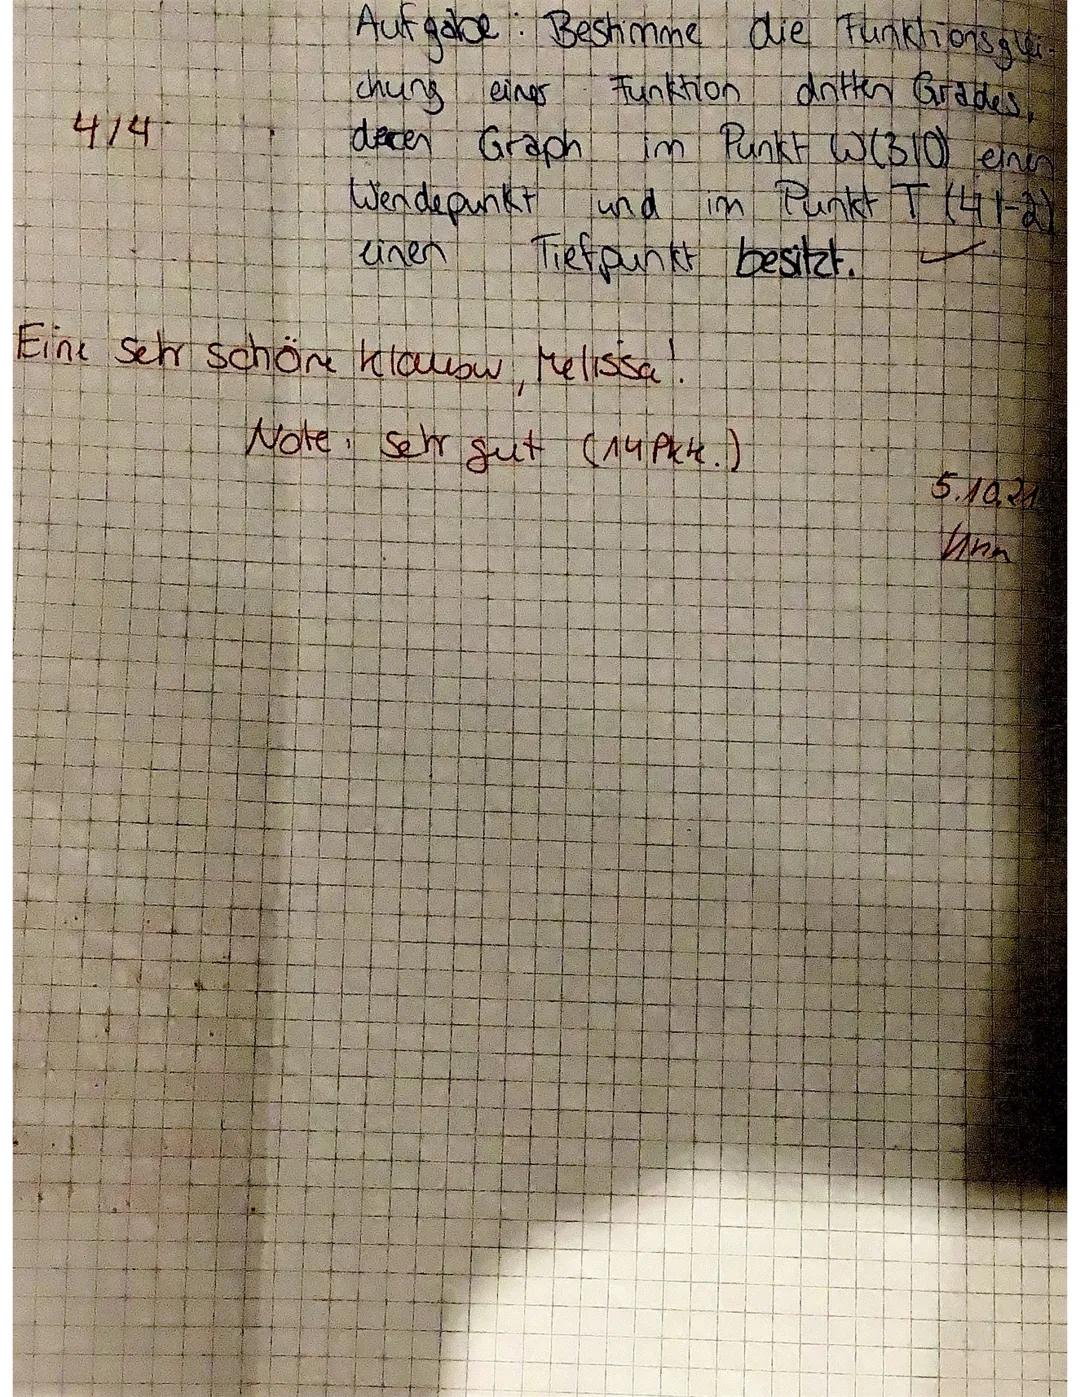 Aufgabe: Bestimme die Funktionsglei-
chung einer Funktion dritten Grades,
4/4
deren Graph im Punkt W(3|0) einen
Wendepunkt und im Punkt T (4|-2)
einen Tiefpunkt besitzt. ✓
Eine sehr schöne Klausur, Melissa!
Note: sehr gut (14 Pkt.)
5.10.21